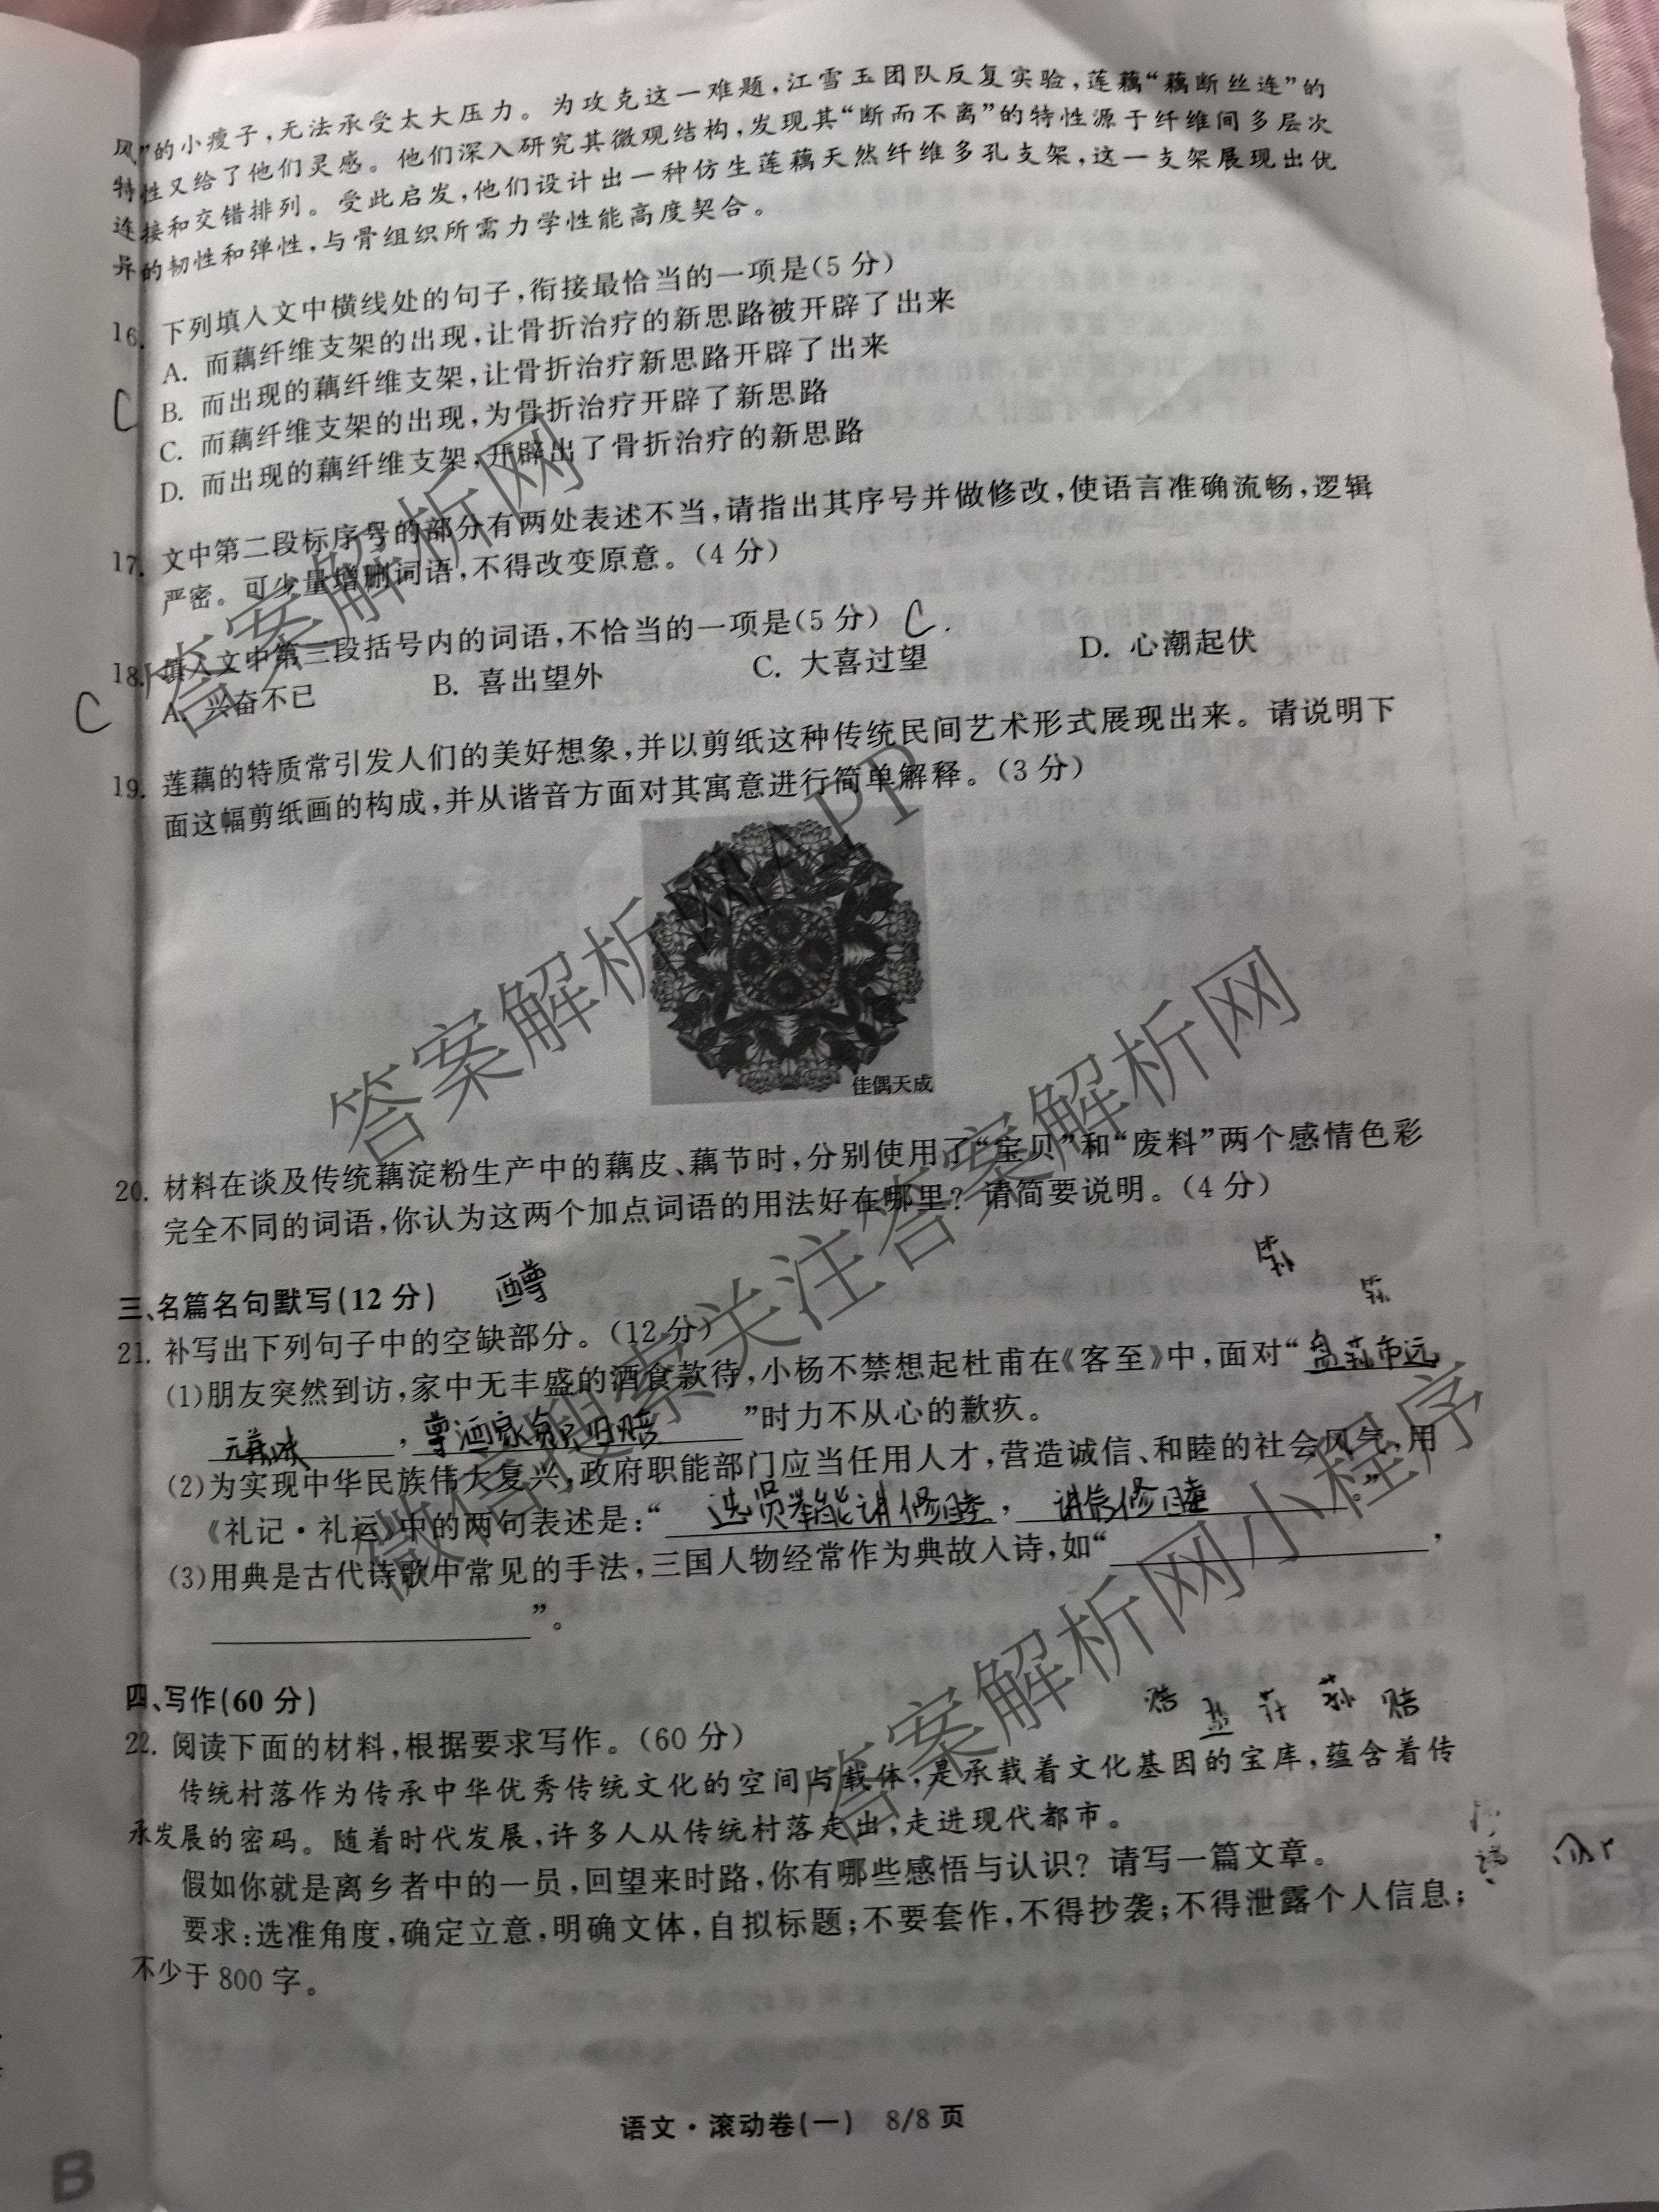 风”的小瘦子，无法承受太大压力。为攻克这一难题，江雪玉团队反复实验，莲藕“藕断丝连”的
特性又给了他们灵感。他们深入研究其微观结构，发现其“断而不离”的特性源于纤维间多层次
连接和交错排列。受此启发，他们设计出一种仿生莲藕天然纤维多孔支架，这一支架展现出优
异的韧性和弹性，与骨组织所需力学性能高度契合。
16. 下列填入文中横线处的句子，衔接最恰当的一项是(5 分)
A. 而藕纤维支架的出现，让骨折治疗的新思路被开辟了出来
B. 而出现的藕纤维支架，让骨折治疗新思路开辟了出来
C
C. 而藕纤维支架的出现，为骨折治疗开辟了新思路
D. 而出现的藕纤维支架，开辟出了骨折治疗的新思路
17. 文中第二段标序号的部分有两处表述不当，请指出其序号并做修改，使语言准确流畅，逻辑
严密。可少量增删词语，不得改变原意。(4 分)
18. 填入文中第三段括号内的词语，不恰当的一项是(5 分) C.
C
A. 兴奋不已 B. 喜出望外 C. 大喜过望 D. 心潮起伏
19. 莲藕的特质常引发人们的美好想象，并以剪纸这种传统民间艺术形式展现出来。请说明下
面这幅剪纸画的构成，并从谐音方面对其寓意进行简单解释。(3 分)
佳偶天成
20. 材料在谈及传统藕淀粉生产中的藕皮、藕节时，分别使用了“宝贝”和“废料”两个感情色彩
完全不同的词语，你认为这两个加点词语的用法好在哪里？请简要说明。(4 分)
三、名篇名句默写(12 分)
21. 补写出下列句子中的空缺部分。(12 分)
(1)朋友突然到访，家中无丰盛的酒食款待，小杨不禁想起杜甫在《客至》中，面对“ 市远
，家 旧醅 ”时力不从心的歉疚。
(2)为实现中华民族伟大复兴，政府职能部门应当任用人才，营造诚信、和睦的社会风气，用
《礼记·礼运》中的两句表述是：“选贤举能讲修睦，讲信修睦”。
(3)用典是古代诗歌中常见的手法，三国人物经常作为典故入诗，如“ ，
”。
四、写作(60 分)
22. 阅读下面的材料，根据要求写作。(60 分)
传统村落作为传承中华优秀传统文化的空间与载体，是承载着文化基因的宝库，蕴含着传
承发展的密码。随着时代发展，许多人从传统村落走出，走进现代都市。
假如你就是离乡者中的一员，回望来时路，你有哪些感悟与认识？请写一篇文章。
要求：选准角度，确定立意，明确文体，自拟标题；不要套作，不得抄袭；不得泄露个人信息；
不少于 800 字。
语文·滚动卷(一) 8/8 页
B
答案解析网
答案解析网APP
微信搜索关注答案解析网
答案解析网小程序